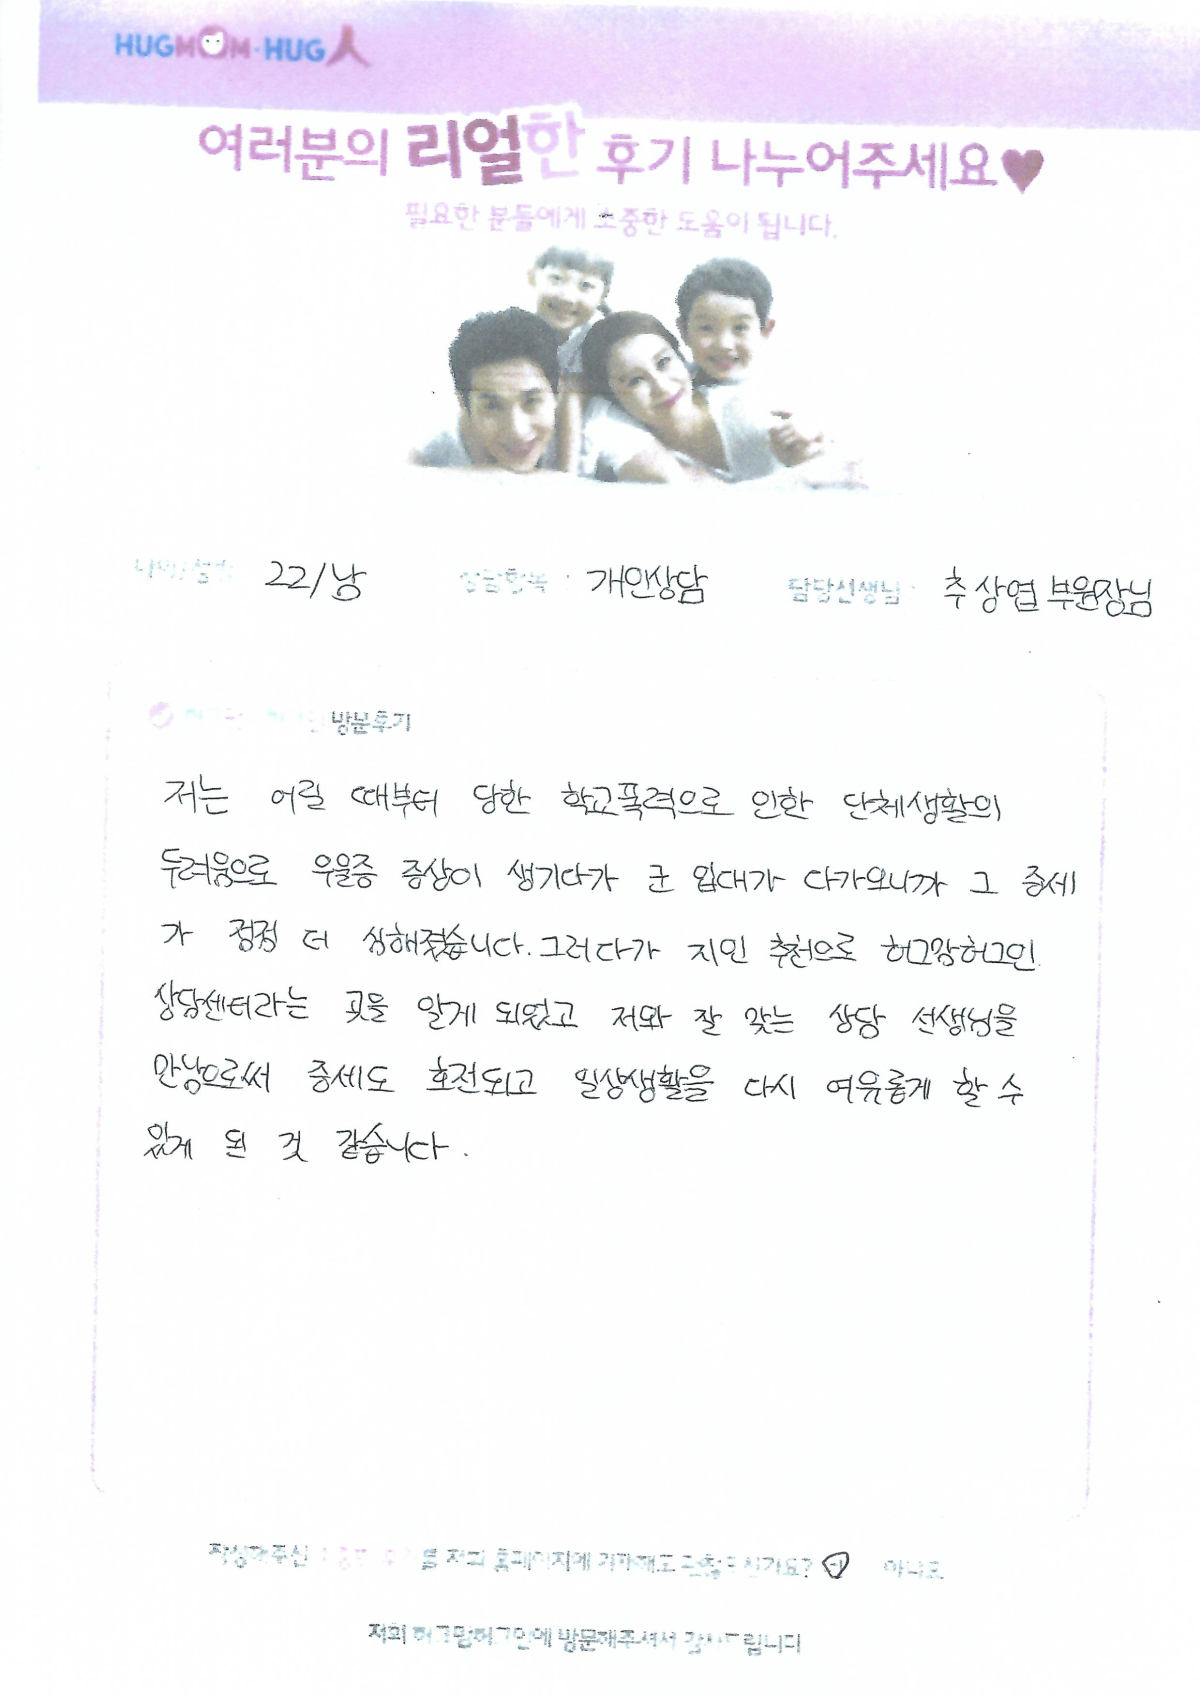 HUGMOM·HUG人
여러분의 리얼한 후기 나누어주세요♥
필요한 분들에게 소중한 도움이 됩니다.
나이/성별 22/남 상담항목 : 개인상담 담당선생님 : 추상엽 부원장님
방문후기
저는 어릴 때부터 당한 학교폭력으로 인한 단체생활의
두려움으로 우울증 증상이 생기다가 군 입대가 다가오니까 그 증세
가 점점 더 심해졌습니다. 그러다가 지인 추천으로 허그맘허그인
상담센터라는 곳을 알게 되었고 저와 잘 맞는 상담 선생님을
만남으로써 증세도 호전되고 일상생활을 다시 여유롭게 할 수
있게 된 것 같습니다.
작성해주신 를 저희 홈페이지에 기재해도 괜찮으신가요? 네 아니오
저희 허그맘허그인에 방문해주셔서 감사드립니다